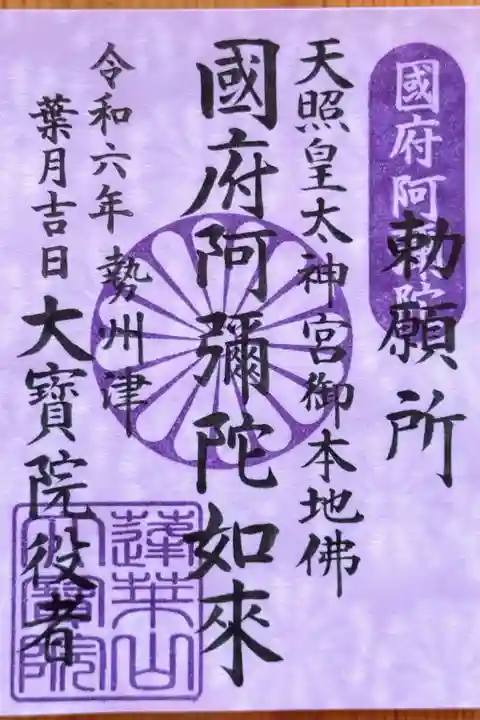 國府阿彌陀
勅願所
天照皇太神宮御本地佛
國府阿彌陀如來
勢州津
大寶院役者
令和六年
葉月吉日
蓮華山
大寶院